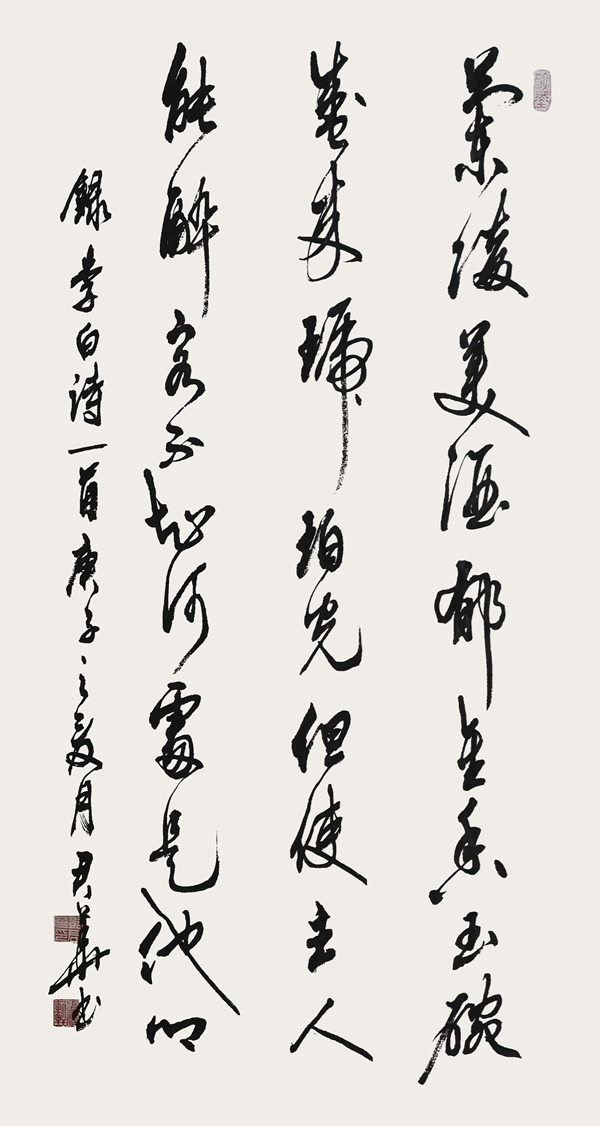 蘭陵美酒郁金香玉碗
盛来琥珀光但使主人
能醉客不知何處是他鄉
録李白诗一首庚子之夏月華书